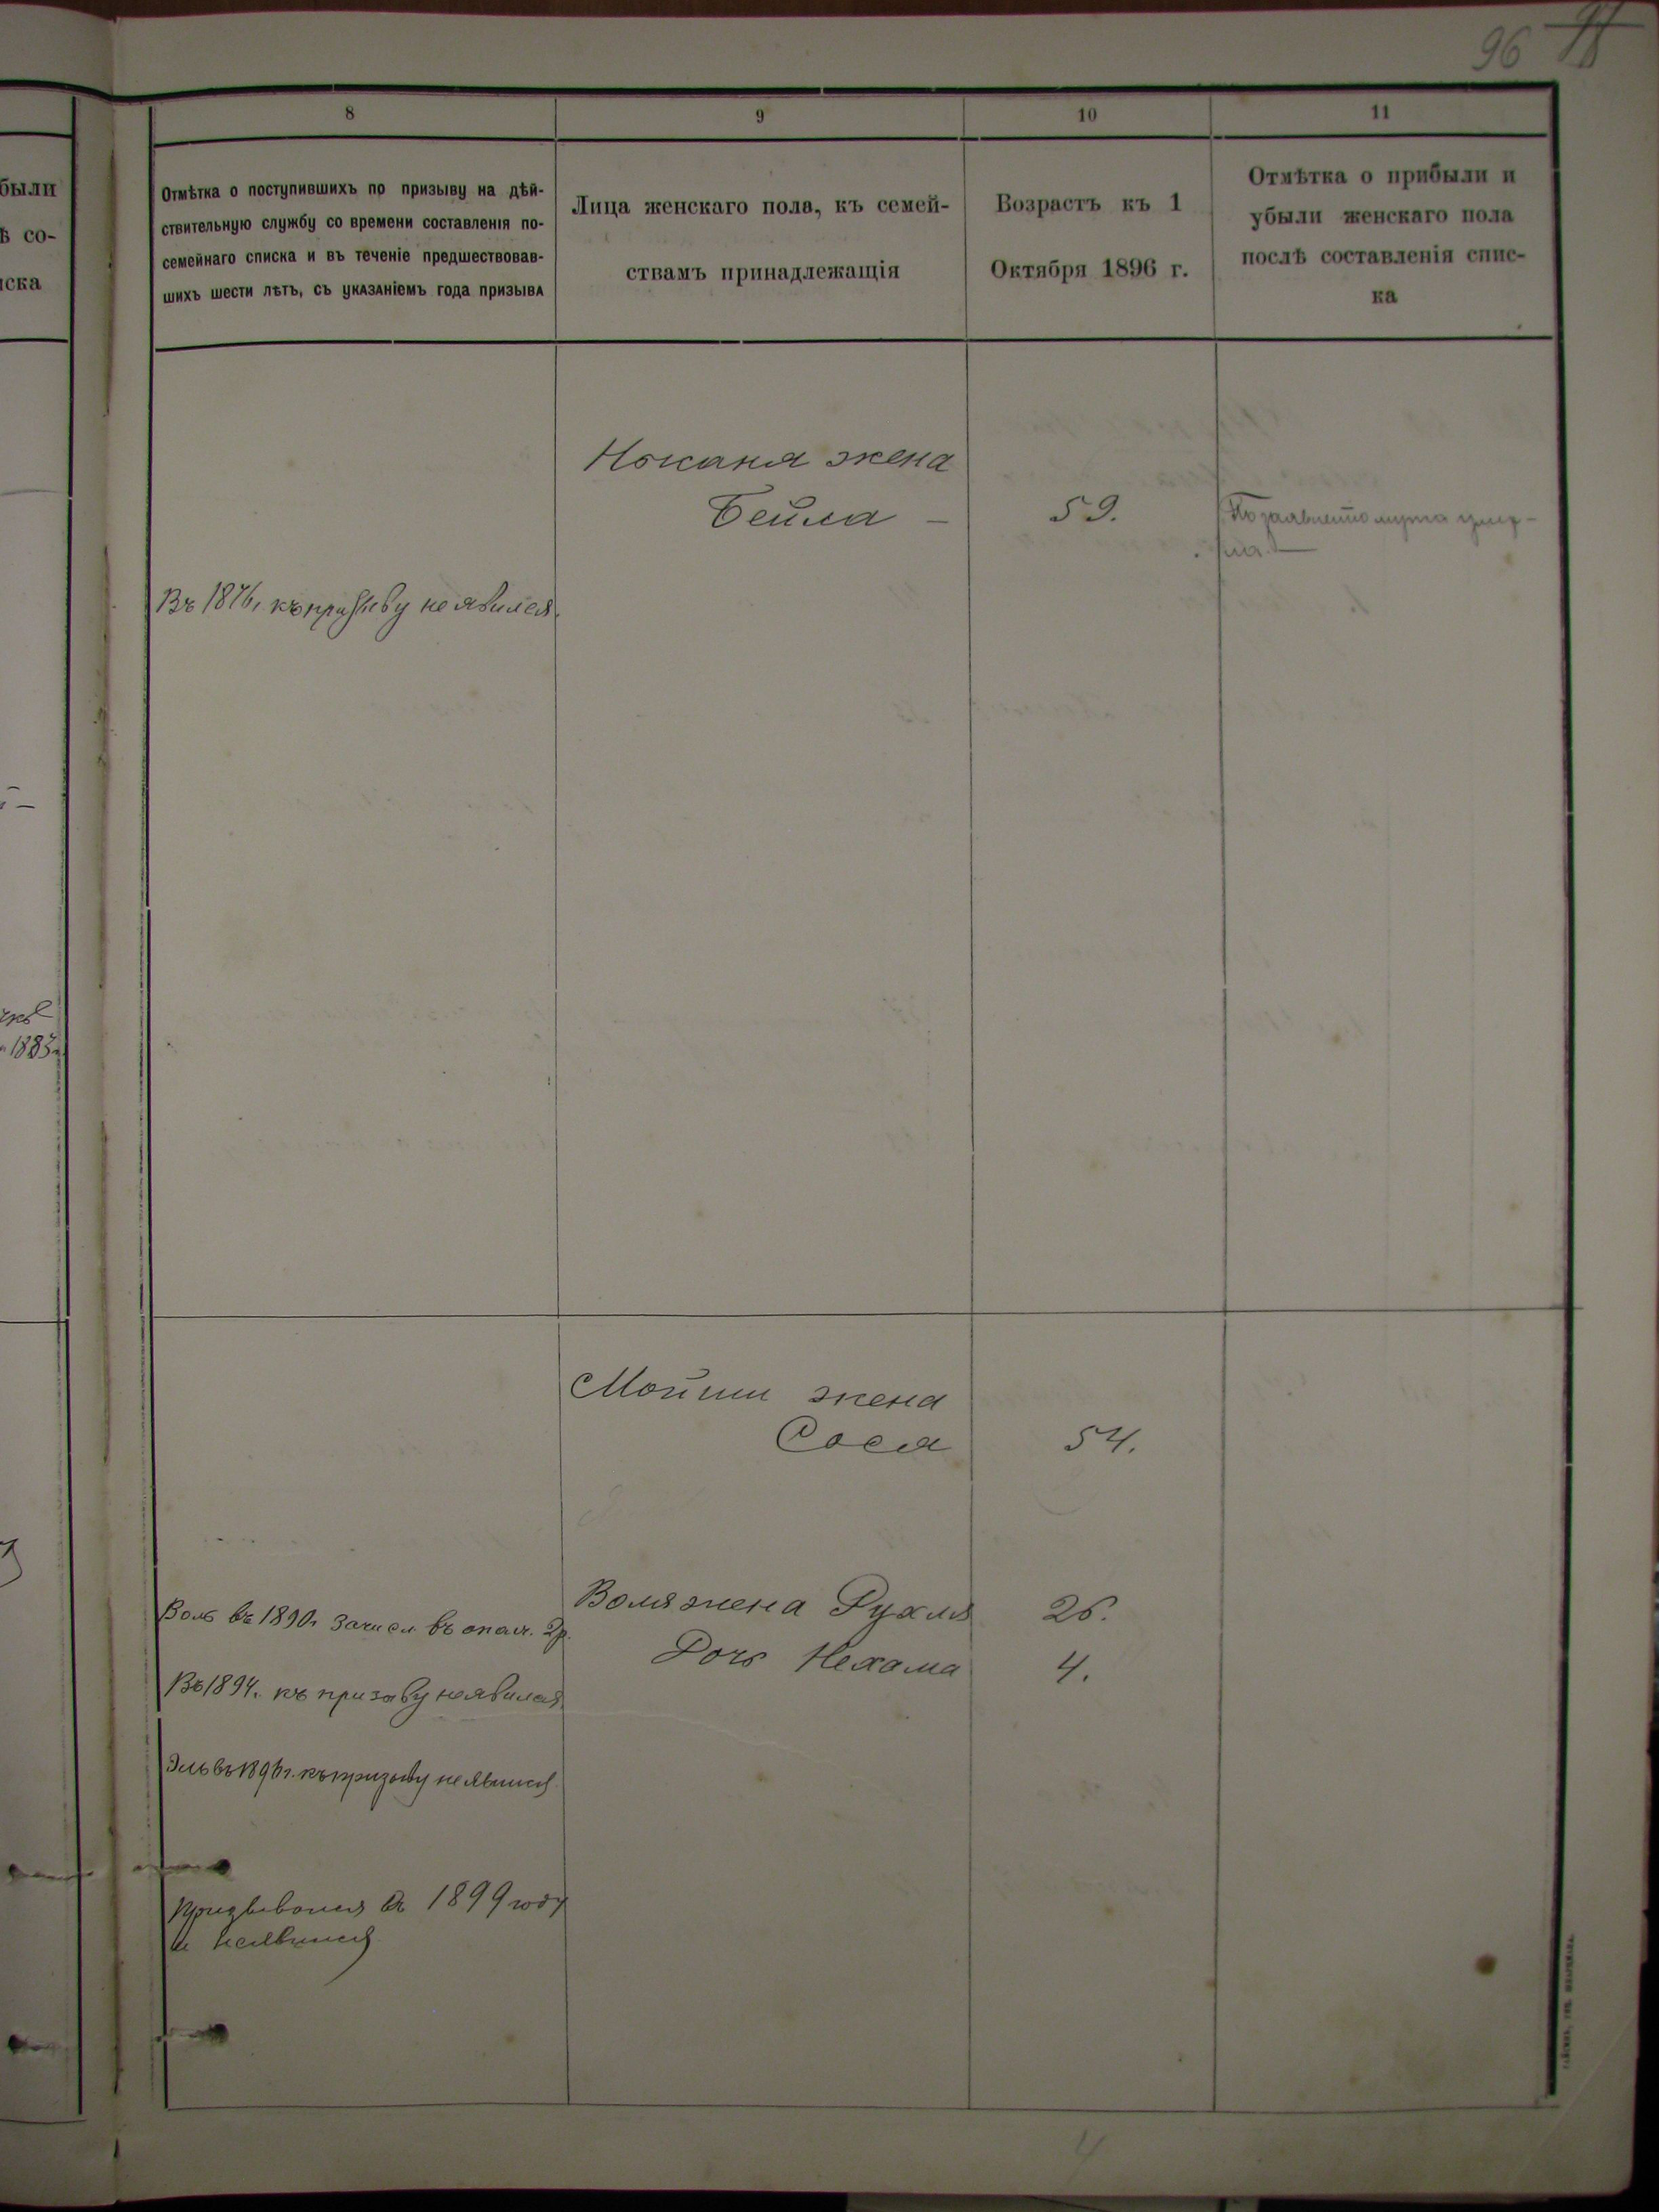 96
8
9
10
11
были
ѣ со-
иска
Отмѣтка о поступившихъ по призыву на дѣй-
ствительную службу со времени составленія по-
семейнаго списка и въ теченіе предшествовав-
шихъ шести лѣтъ, съ указаніемъ года призыва
Лица женскаго пола, къ семей-
ствамъ принадлежащія
Возрастъ къ 1
Октября 1896 г.
Отмѣтка о прибыли и
убыли женскаго пола
послѣ составленія спис-
ка
жена
Бейла –
59.
По заявленію мужа умер-
ла.
къ призыву не явился.
1883
Мойши жена
Сося
54.
Воля жена Рухля
26.
Дочь Нехама
4.
Воль въ 1890г зачисл. въ опол. 2р.
Въ 1894. къ призыву не явился
Эль въ 1896г. къ призыву не явился
Призывался въ 1899 году
и не явился
4